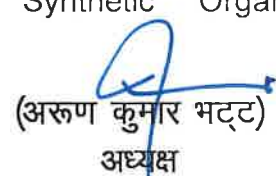 Synthetic Orga
(अरूण कुमार भट्ट)
अध्यक्ष